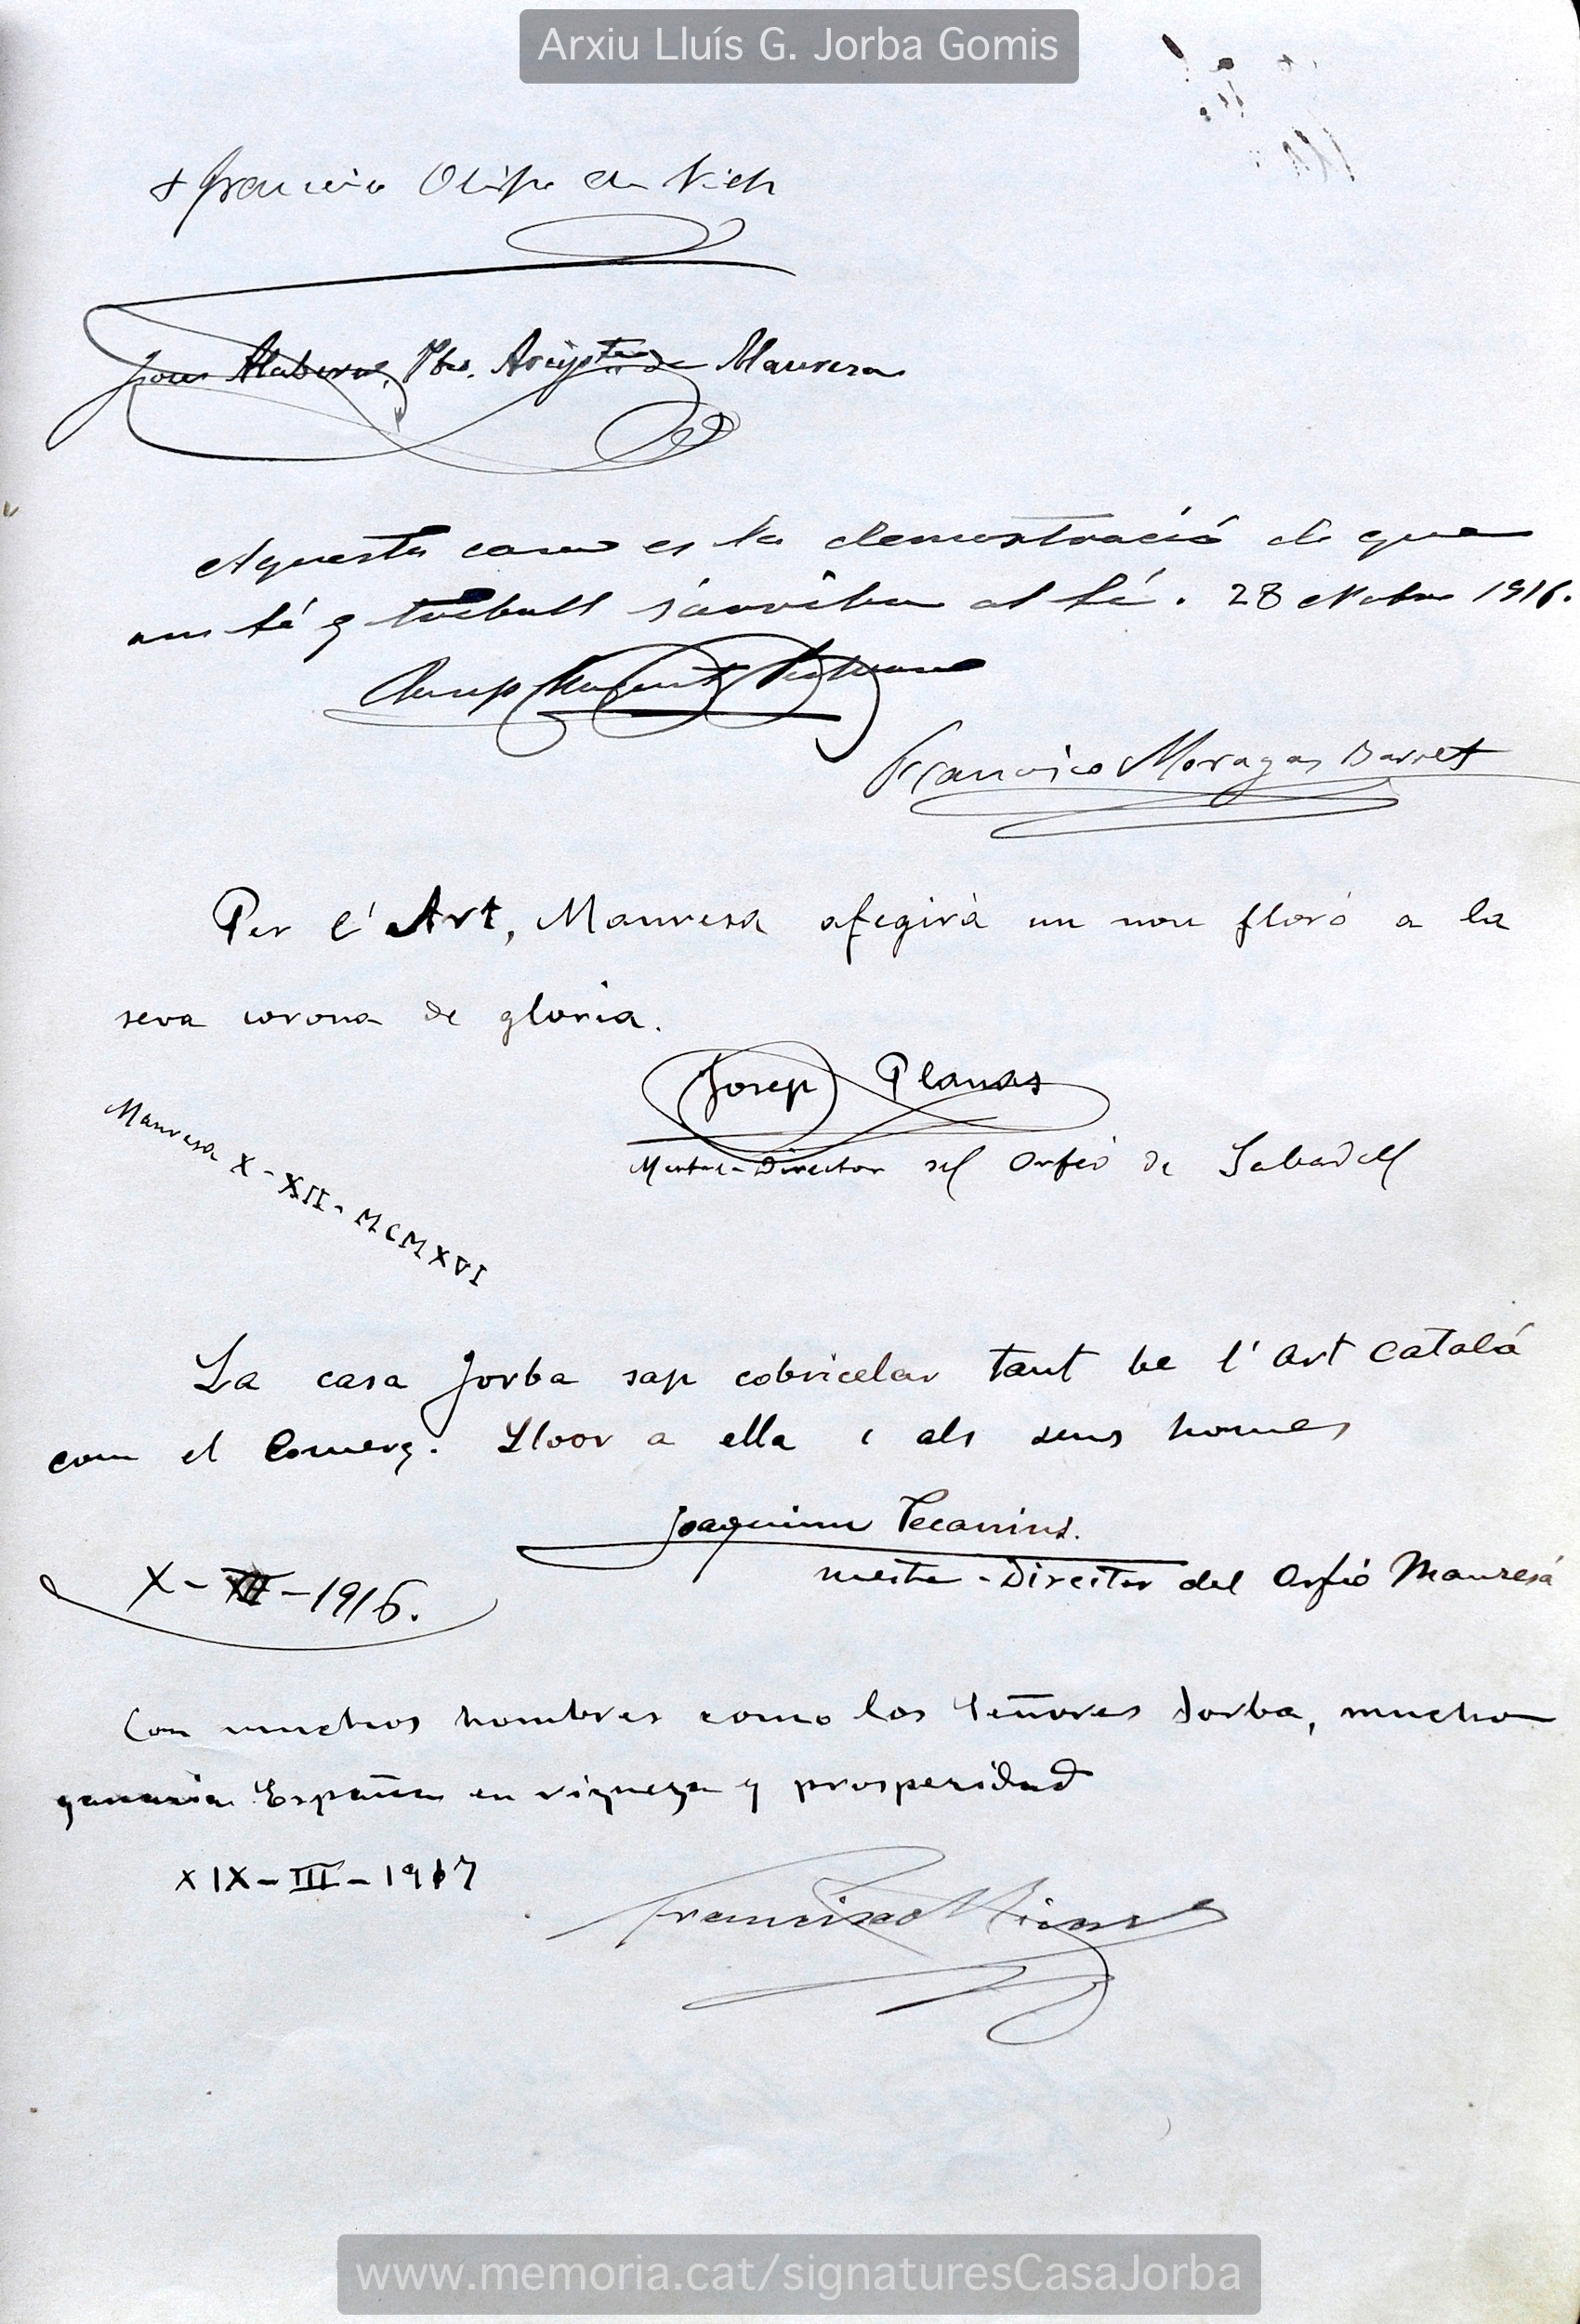 Arxiu Lluís G. Jorba Gomis
+ Francisco Obispo de Vich
Pbro. Arcipte de Manresa
Aquesta casa es la demostració de que
am fé y treball s'arriba al fí. 28 Nobre 1916.
Josep
Francisco Moragas Barret
Per l'Art, Manresa afegirà un nou floró a la
seva corona de gloria.
Josep Planas
Mestre-Director del Orfeó de Sabadell
Manresa X-XII-MCMXVI
La casa Jorba sap cobricelar tant be l'art català
com el Comerç. Lloor a ella i als seus homes
Joaquim Pecanins.
mestre-Director del Orfeó Manresà
X-XII-1916.
Con muchos hombres como los Señores Jorba, mucho
ganaria España en riqueza y prosperidad
XIX-III-1917
Francisco
www.memoria.cat/signaturesCasaJorba